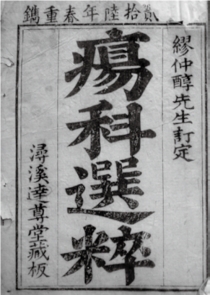 貳拾陸年春重鐫
繆仲醇先生訂定
瘍科選粹
潯溪達尊堂藏板